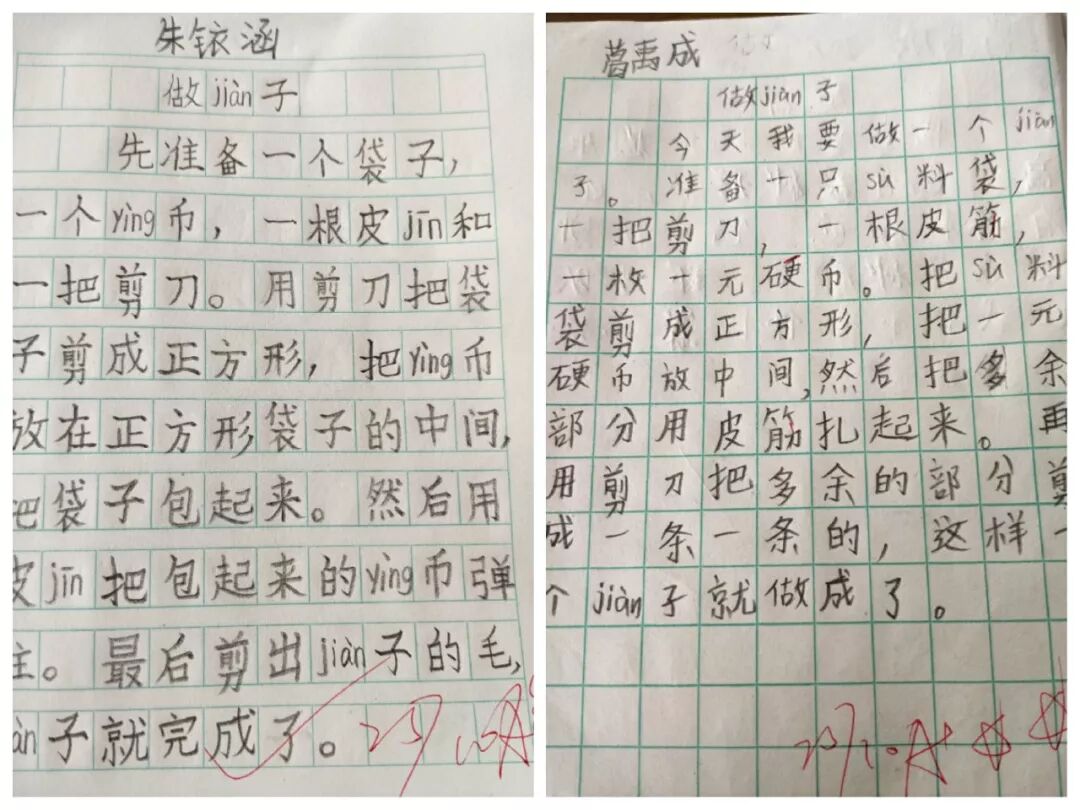 朱铱涵
做jiàn子
先准备一个袋子，
一个yìng币，一根皮jīn和
一把剪刀。用剪刀把袋
子剪成正方形，把yìng币
放在正方形袋子的中间，
把袋子包起来。然后用
皮jīn把包起来的yìng币弹
住。最后剪出jiàn子的毛，
jiàn子就完成了。
葛禹成
做jiàn子
今天我要做一个jiàn
子。准备一只sù料袋，
一把剪刀，一根皮筋，
一枚一元硬币。把sù料
袋剪成正方形，把一元
硬币放中间，然后把多余
部分用皮筋扎起来。再
用剪刀把多余的部分剪
成一条一条的，这样一
个jiàn子就做成了。